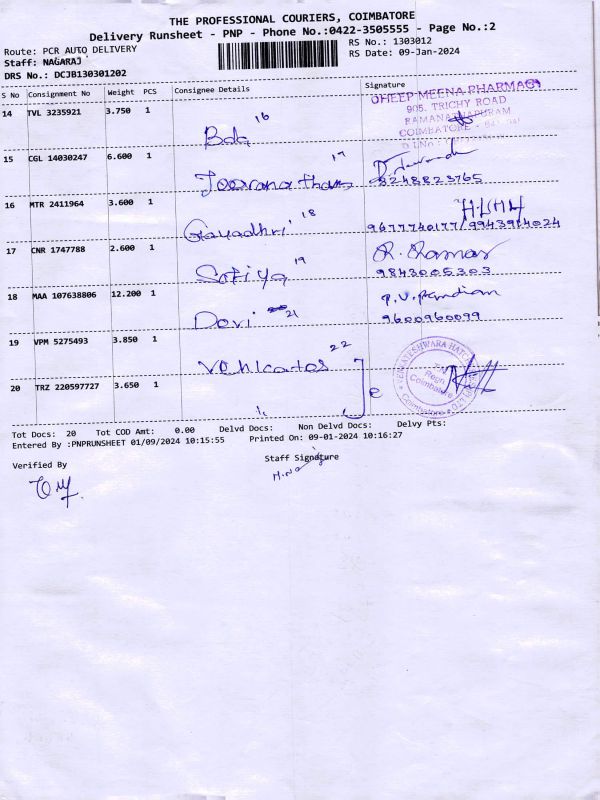 THE PROFESSIONAL COURIERS, COIMBATORE
Delivery Runsheet - PNP - Phone No.:0422-3505555 - Page No.:2
Route: PCR AUTO DELIVERY
RS No.: 1303012
Staff: NAGARAJ
RS Date: 09-Jan-2024
DRS No.: DCJB130301202
S No Consignment No Weight PCS Consignee Details Signature
14 TVL 3235921 3.750 1
16
DHEEP MEENA PHARMACY
905, TRICHY ROAD
RAMANATHAPURAM
COIMBATORE
15 CGL 14030247 6.600 1
17
9248823765
16 MTR 2411964 3.600 1
Gayadhri 18
9677740177/9943984024
17 CNR 1747788 2.600 1
Sathya 19
R. Raman
9843005303
18 MAA 107638806 12.200 1
Devi 21
P.V. Pandian
9600960099
19 VPM 5275493 3.850 1
22
20 TRZ 220597727 3.650 1
Regn
Coimbatore
Tot Docs: 20 Tot COD Amt: 0.00 Delvd Docs: Non Delvd Docs: Delvy Pts:
Entered By :PNPRUNSHEET 01/09/2024 10:15:55 Printed On: 09-01-2024 10:16:27
Verified By
Staff Signature